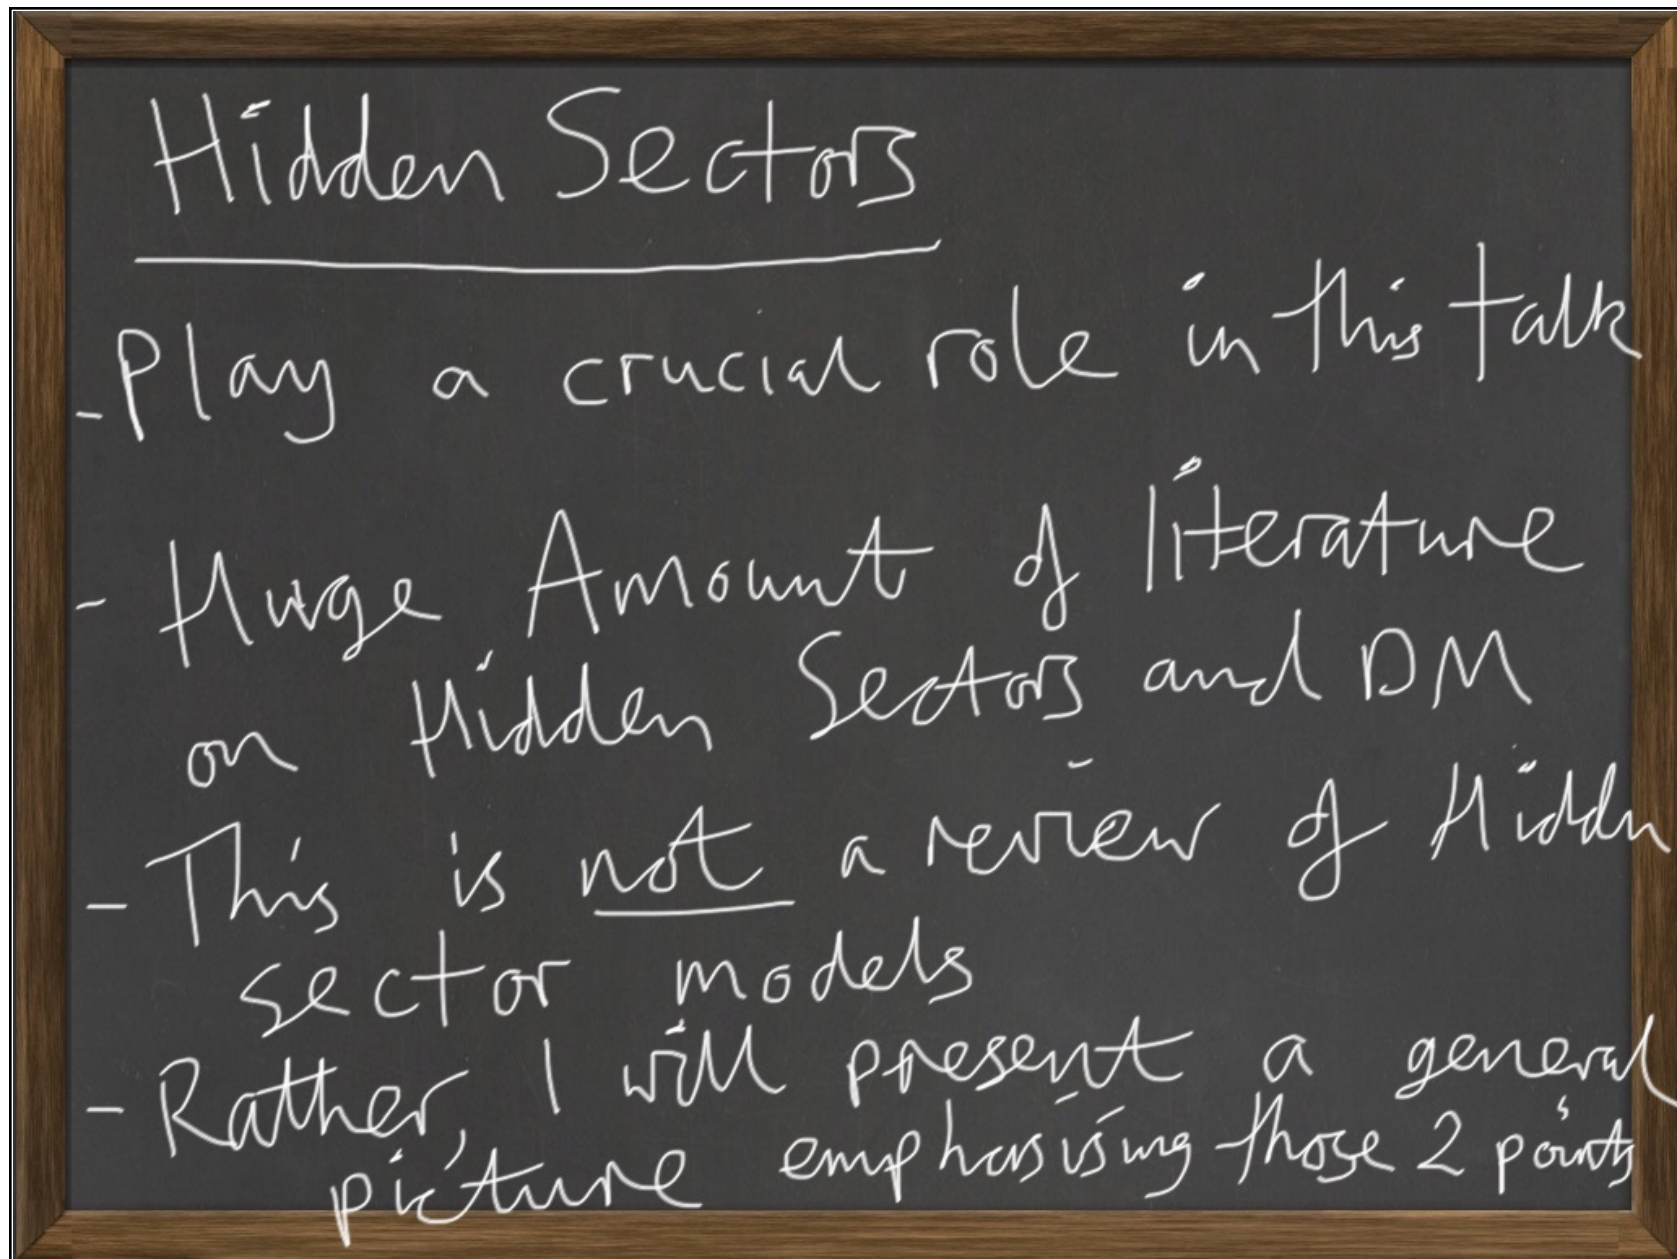 Hidden Sectors
- Play a crucial role in this talk
- Huge Amount of literature
on Hidden Sectors and DM
- This is not a review of Hidden
sector models
- Rather, I will present a general
picture emphasising those 2 points